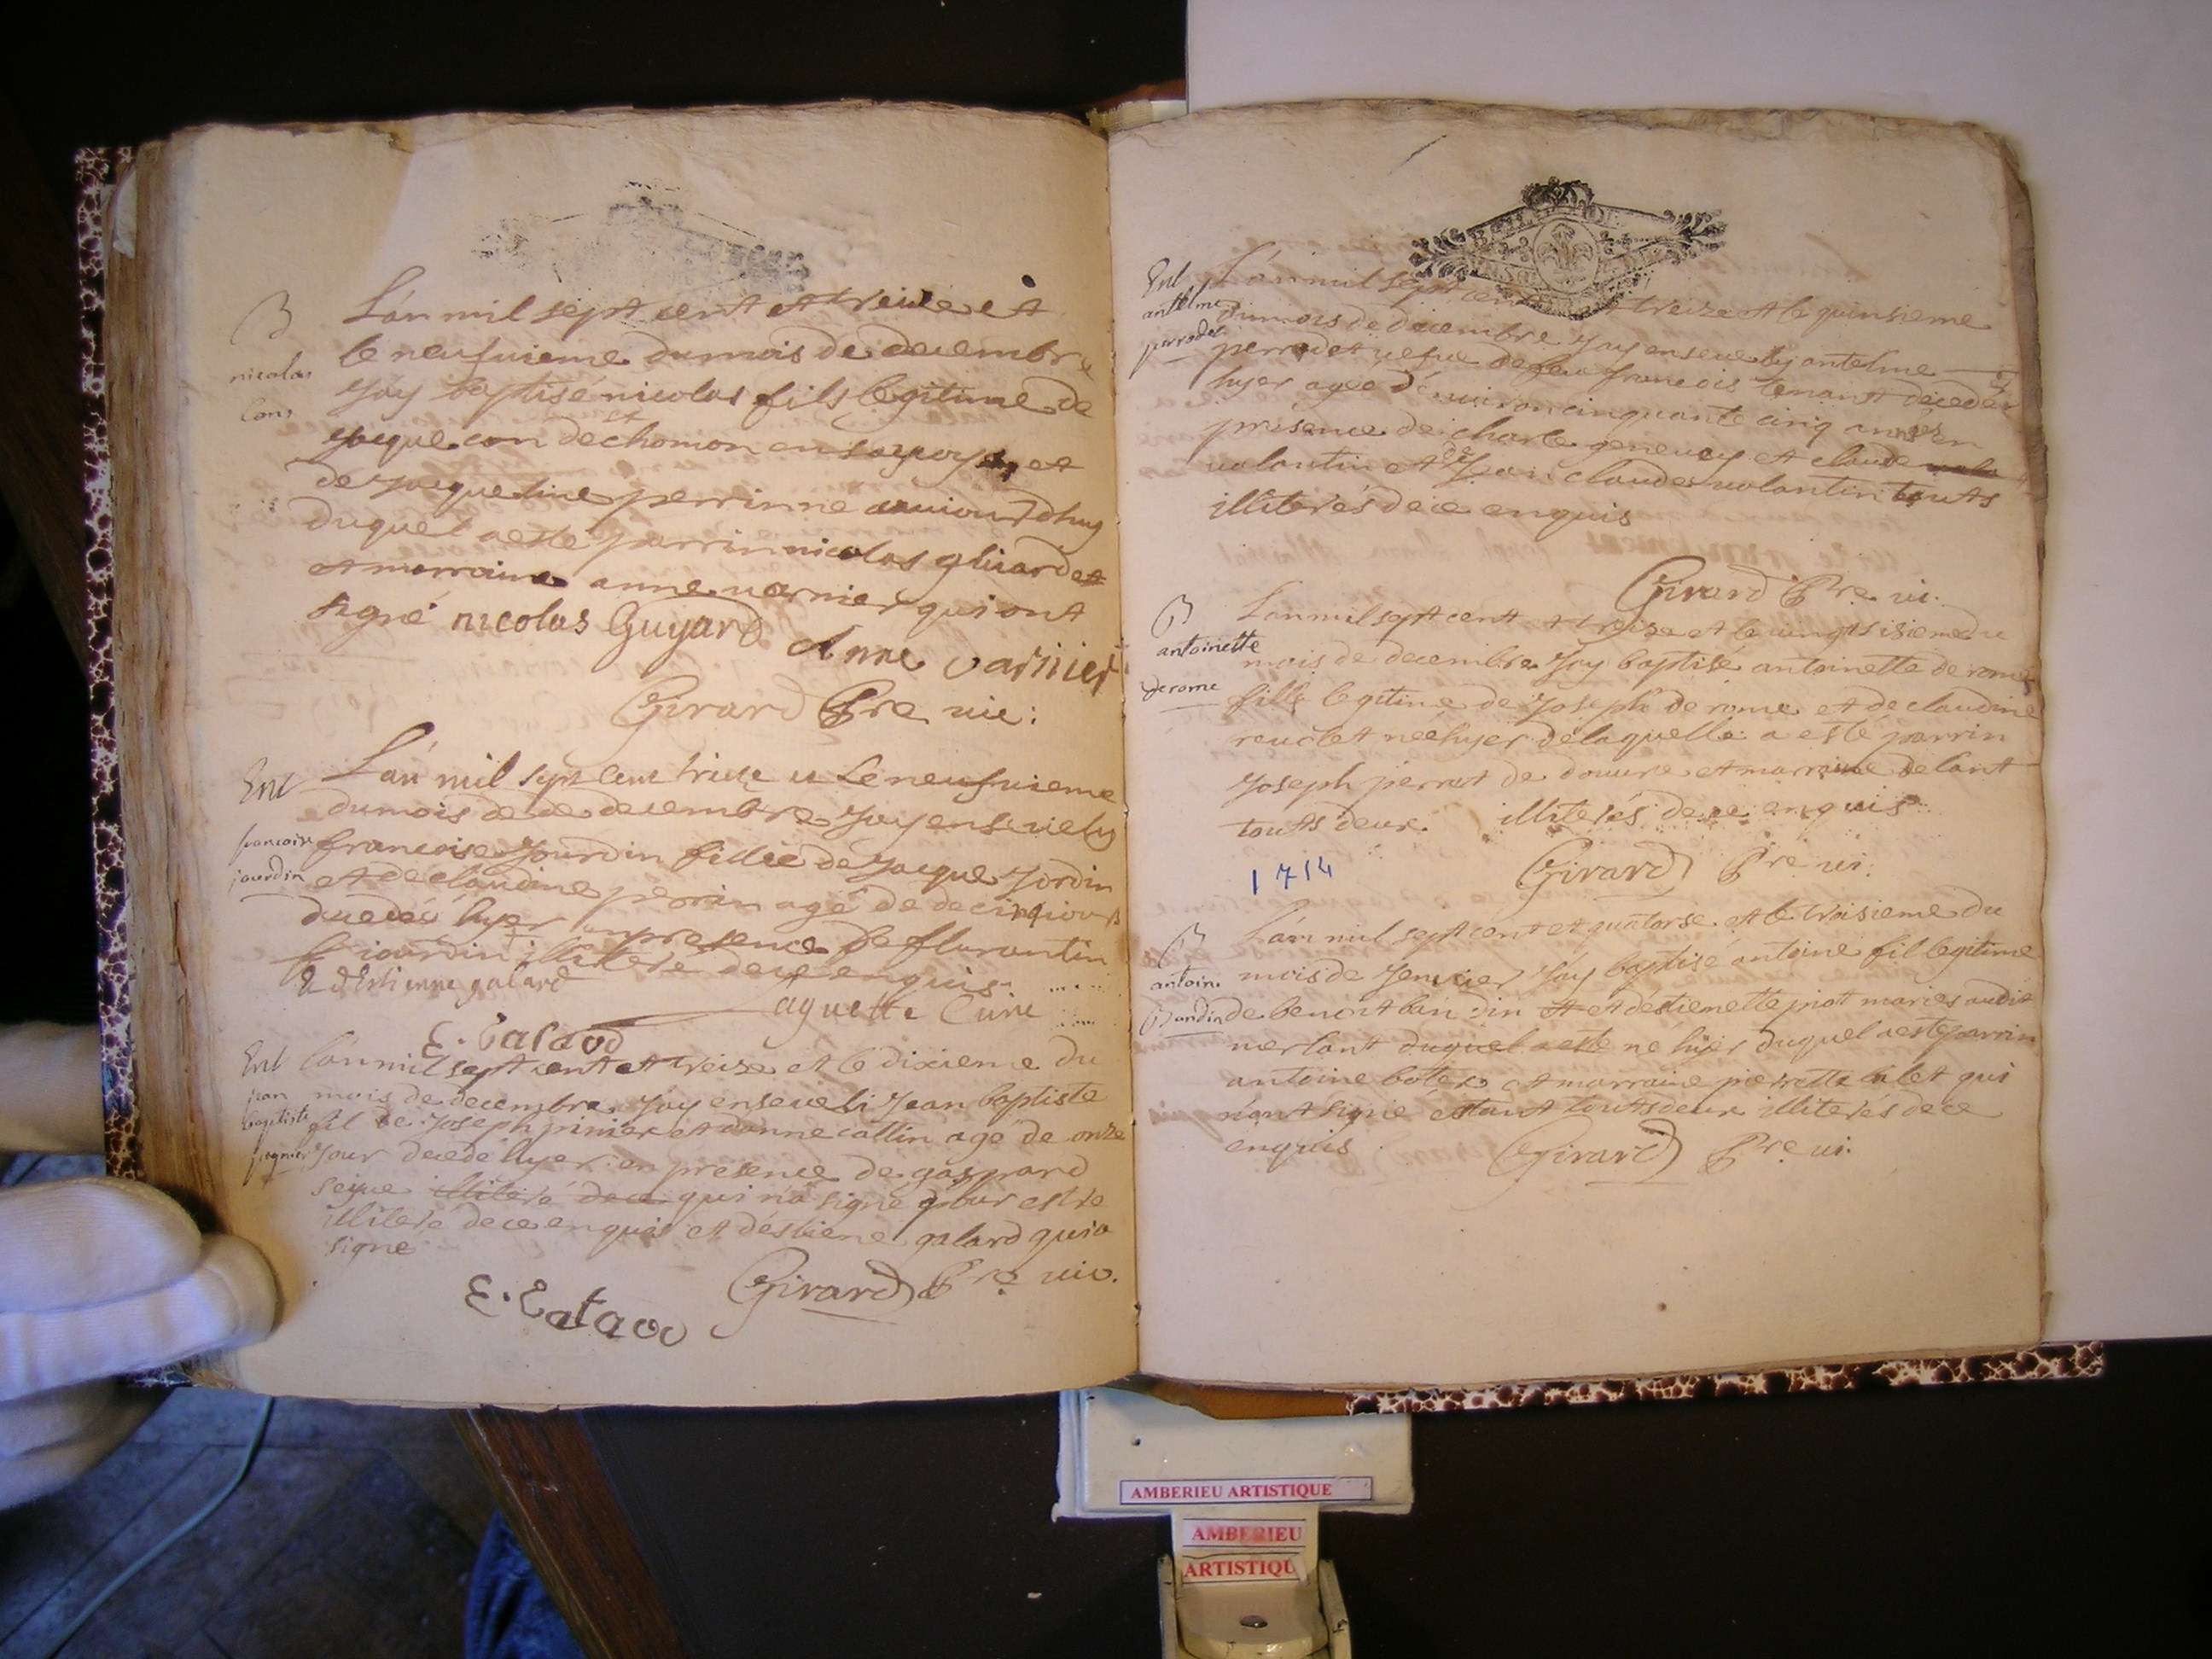 B
nicolas
Con
L'án mil sept cent et treize et
le neufuieme du mois de decembre
Jáy baptisé nicolas fils legitime de
Jacque con de chomon en sauoye et
de Jacqueline perrinne auiourdhuy
duquel a este parrin nicolas ghiard et
et marraine anne varnier qui ont
signé nicolas Guyard
Anne varnier
Girard Pre vic:
Ent
francoise
jourdin
L'án mil sept cent treize et Le neufuieme
du mois de de decembre Jay ensevely
francoise Jourdin fillie de Jacque Jordin
et de claudine perrin agé de de cinq iours
decedée hyer en presence de flurantin
iourdin illiteré de ce enquis
& d'Estienne galard
aguette Curé
E. Galard
Ent
jean
baptiste
pignier
L'án mil sept cent et treize et le dixieme du
mois de decembre Jay enseveli Jean baptiste
fil de Joseph pinier et d'anne collin agé de onze
Jour decedé hyer en presence de gaspard
seyue illiteré de ce qui n'a signé pour estre
illiteré de ce enquis et d'estiene galard qui a
signé
Girard Pre vic.
E. Galard
Ent
antelme
perrodet
L'án mil sept cent et treize et le quinsieme
du mois de decembre Jay ensevely antelme
perrodet uefue de feu francois tenant decedée
hyer agée d'enuiron cinquante cinq années en
presence de charle geneuay et claude
volantin et de Jean claude volantin touts
illiterés de ce enquis
Girard Pre vi.
B
antoinette
derome
L'an mil sept cent et treize et le vingt sisieme du
mois de decembre Jay baptisé antoinette de rome
fille legitime de Joseph de rome et de claudine
reuclet née hyer de laquelle a esté parrin
Joseph perrot de douure et marraine
touts deux illiterés de ce enquis
Girard Pre vi.
1714
B
antoine
Bandin
L'án mil sept cent et quatorse et le troisieme du
mois de Jenvier Jáy baptisé antoine fil legitime
de benoit bandin et et d'estienette piot maries audit
duquel a este né hyer duquel a este parrin
antoine botex et marraine pierrette balet qui
n'ont signé estant touts deux illiterés de ce
enquis
Girard Pre vi.
AMBERIEU ARTISTIQUE
AMBERIEU
ARTISTIQU